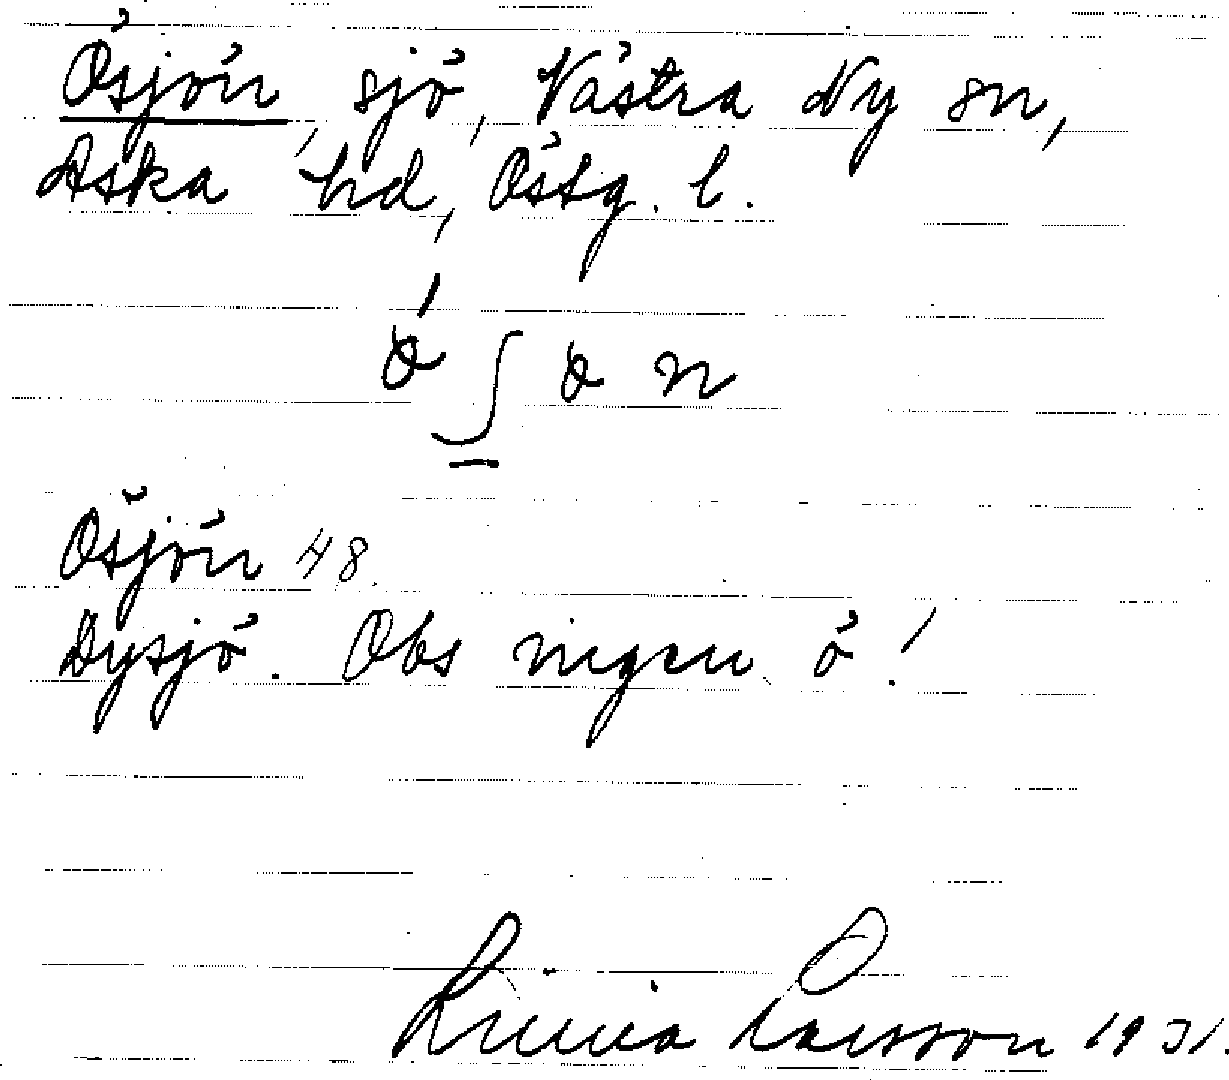 Ösjön, sjö, Västra Ny sn,
Aska hd, Östg. l.
ǿ ʃ ø n
Ösjön 48.
Dysjö. Obs ingen ö!
Larsson 1931.